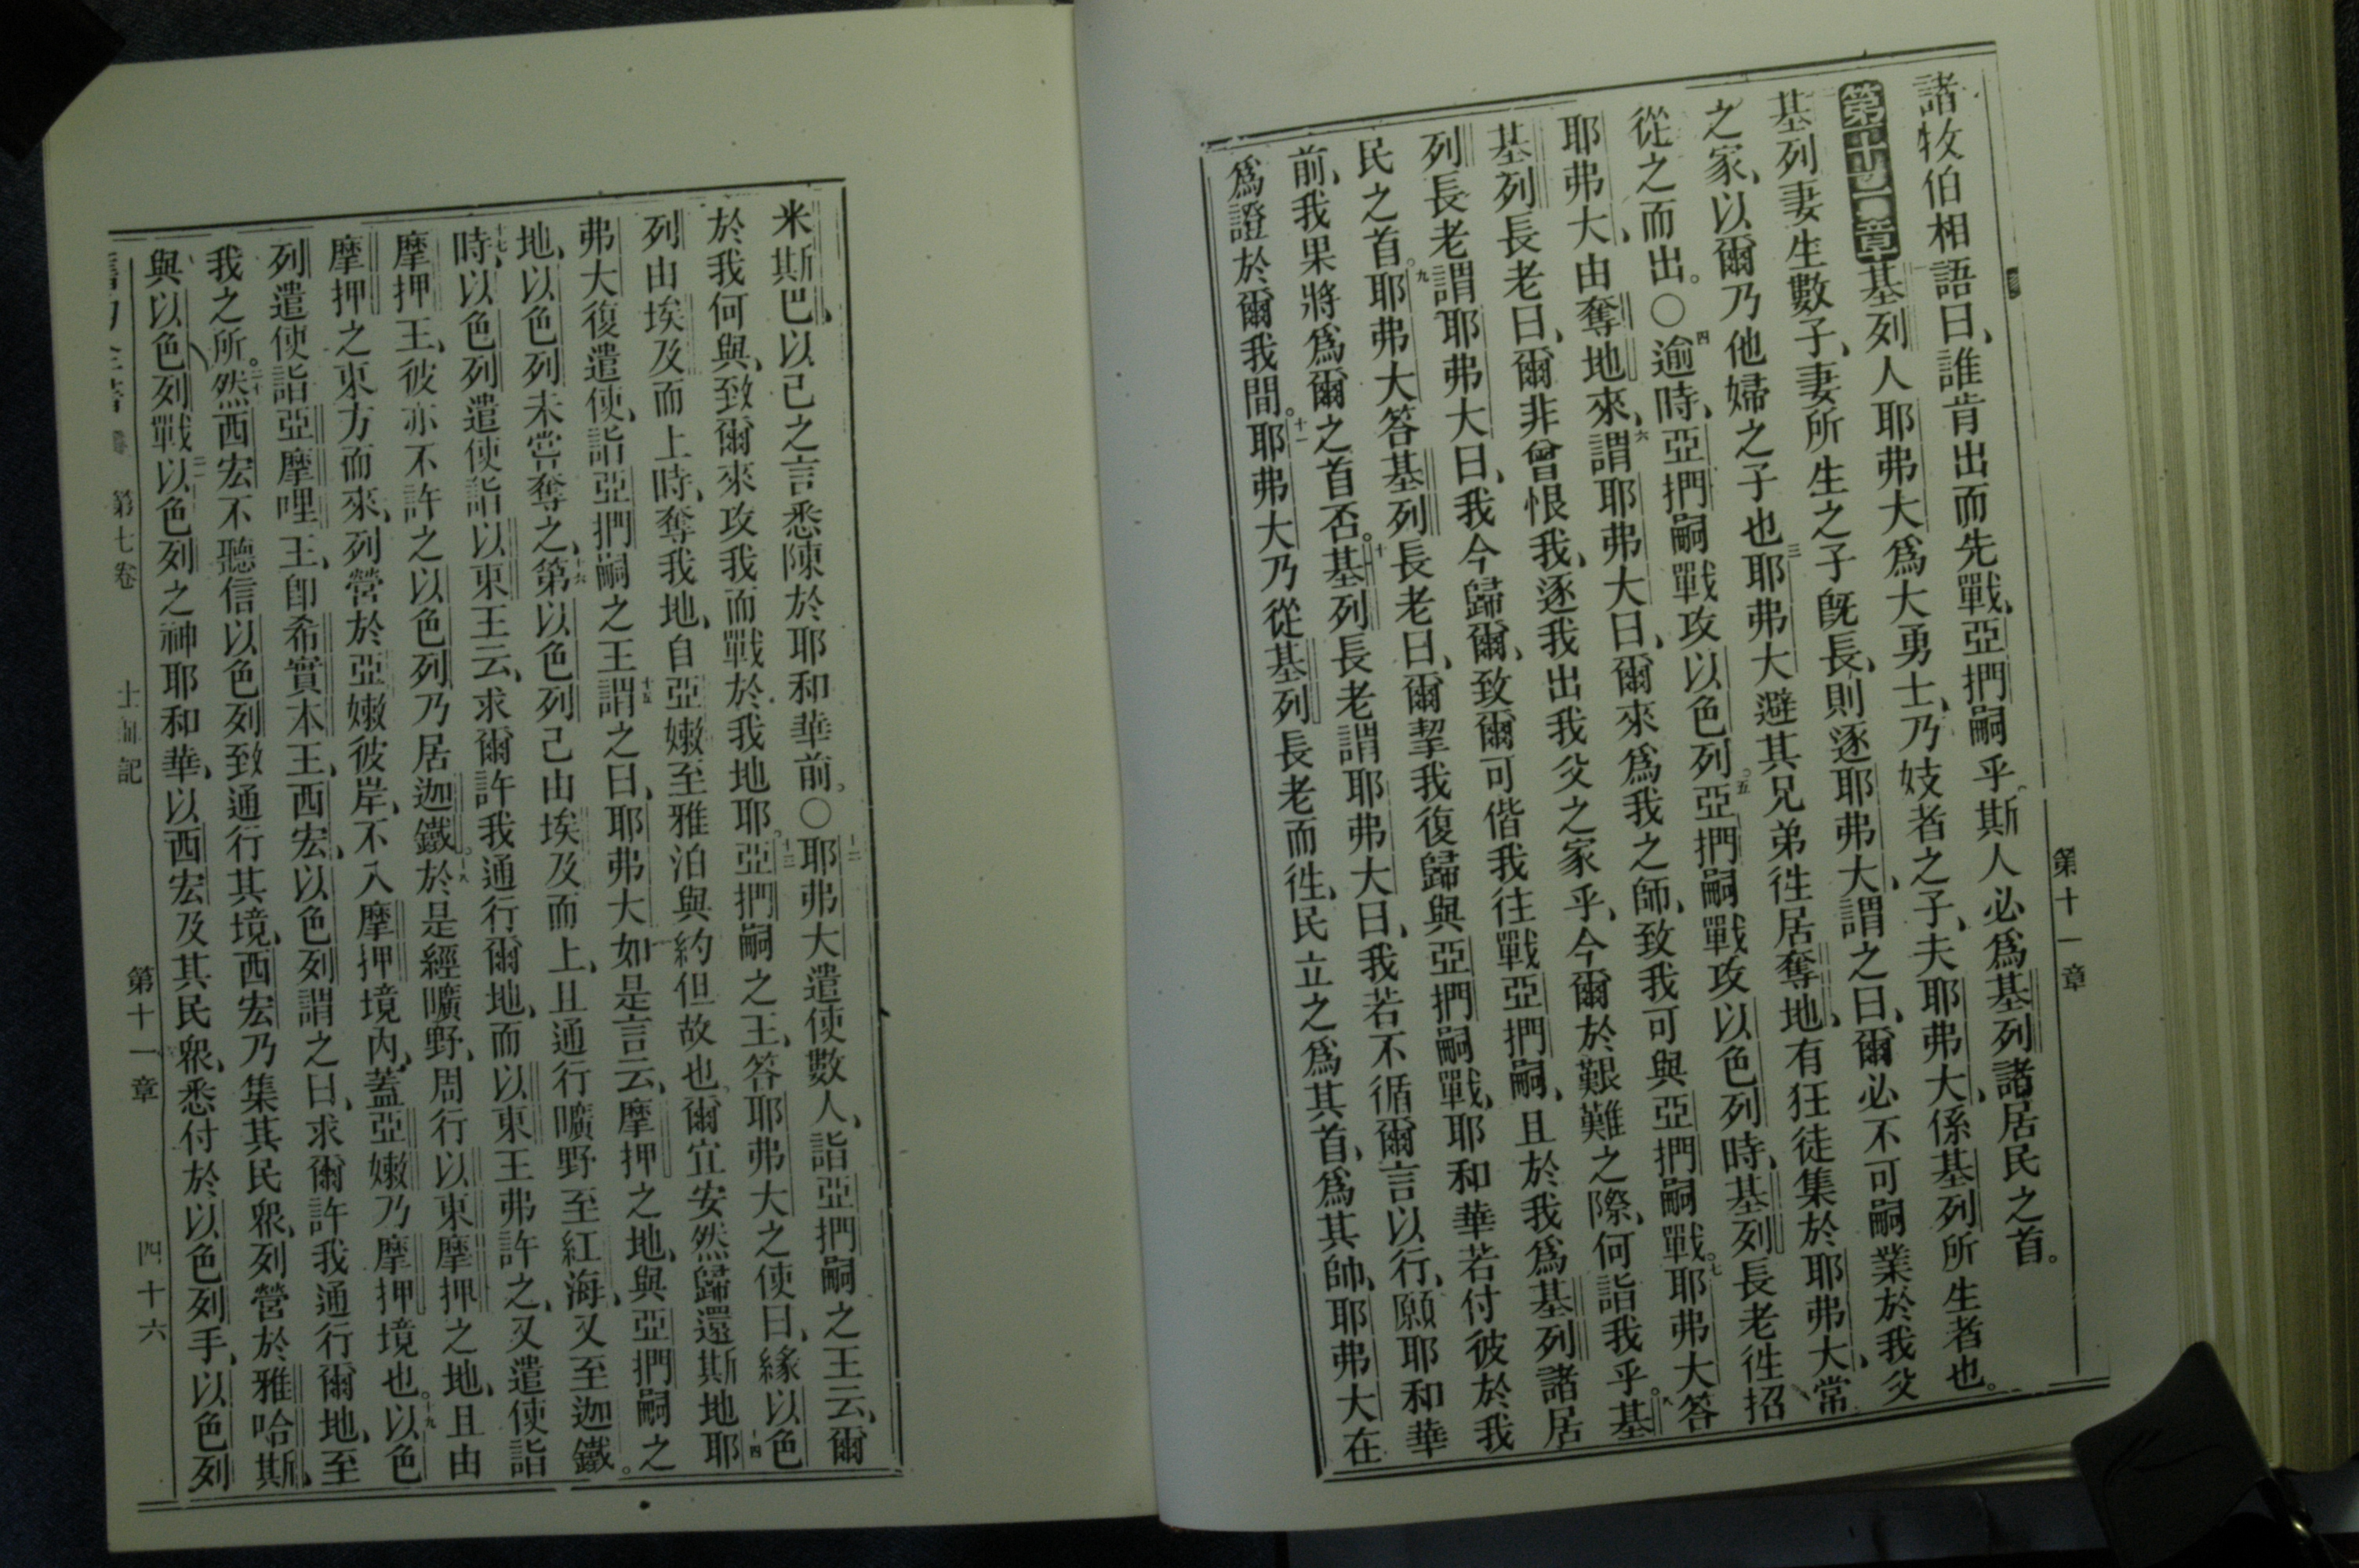 諸牧伯相語曰、誰肯出而先戰、亞捫嗣乎、斯人必爲基列諸居民之首。
第十一章 基列人耶弗大爲大勇士、乃妓者之子、夫耶弗大、係基列所生者也。
基列妻生數子、妻所生之子旣長、則逐耶弗大、謂之曰、爾必不可嗣業於我父
之家、以爾乃他婦之子也、三耶弗大避其兄弟徃居奪地、有狂徒集於耶弗大、常
從之而出。○四逾時、亞捫嗣戰攻以色列。五亞捫嗣戰攻以色列時、基列長老徃招
耶弗大、由奪地來、六謂耶弗大曰、爾來爲我之師、致我可與亞捫嗣戰。七耶弗大答
基列長老曰、爾非曾恨我、逐我出我父之家乎、今爾於艱難之際、何詣我乎。八基
列長老謂耶弗大曰、我今歸爾、致爾可偕我往戰亞捫嗣、且於我爲基列諸居
民之首。九耶弗大答基列長老曰、爾挈我復歸與亞捫嗣戰、耶和華若付彼於我
前、我果將爲爾之首否。十基列長老謂耶弗大曰、我若不循爾言以行、願耶和華
爲證於爾我間。十一耶弗大乃從基列長老而徃、民立之爲其首、爲其帥、耶弗大在
第十一章
米斯巴、以己之言悉陳於耶和華前。○十二耶弗大遣使數人、詣亞捫嗣之王云、爾
於我何與、致爾來攻我而戰於我地耶。十三亞捫嗣之王、答耶弗大之使曰、緣以色
列由埃及而上時、奪我地、自亞嫩至雅泊與約但故也。爾宜安然歸還斯地、十四耶
弗大復遣使、詣亞捫嗣之王、十五謂之曰、耶弗大如是言云、摩押之地、與亞捫嗣之
地、以色列未嘗奪之、十六第以色列己由埃及而上、且通行曠野至紅海、又至迦鐵。
十七時、以色列遣使詣以東王云、求爾許我通行爾地、而以東王弗許之、又遣使詣
摩押王、彼亦不許之、以色列乃居迦鐵。十八於是經曠野、周行以東摩押之地、且由
摩押之東方而來、列營於亞嫩彼岸、不入摩押境內、蓋亞嫩乃摩押境也。十九以色
列遣使詣亞摩哩王、卽希實本王、西宏、以色列謂之曰、求爾許我通行爾地、至
我之所。二十然西宏不聽信以色列致通行其境、西宏乃集其民衆、列營於雅哈斯、
與以色列戰、二一以色列之神耶和華、以西宏及其民衆、悉付於以色列手、以色列
第七卷 士師記 第十一章 四十六